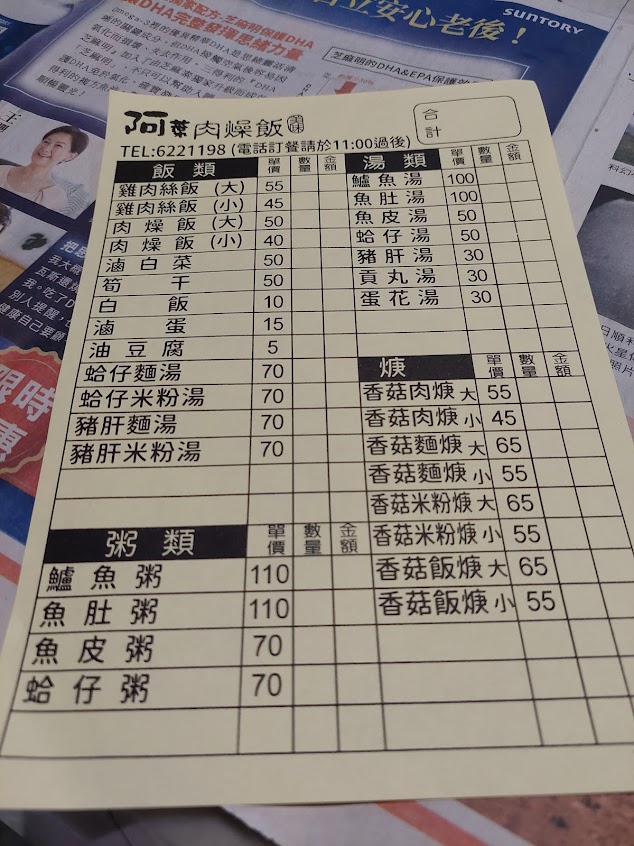 SUNTORY
立安心老後！
芝麻明的DHA&EPA保護效
阿葉肉燥飯 美味
合計
TEL:6221198 (電話訂餐請於11:00過後)
飯類 單價 數量 金額
雞肉絲飯 (大) 55
雞肉絲飯 (小) 45
肉燥飯 (大) 50
肉燥飯 (小) 40
滷白菜 50
筍干 50
白飯 10
滷蛋 15
油豆腐 5
蛤仔麵湯 70
蛤仔米粉湯 70
豬肝麵湯 70
豬肝米粉湯 70
粥類 單價 數量 金額
鱸魚粥 110
魚肚粥 110
魚皮粥 70
蛤仔粥 70
湯類 單價 數量 金額
鱸魚湯 100
魚肚湯 100
魚皮湯 50
蛤仔湯 50
豬肝湯 30
貢丸湯 30
蛋花湯 30
焿 單價 數量 金額
香菇肉焿 大 55
香菇肉焿 小 45
香菇麵焿 大 65
香菇麵焿 小 55
香菇米粉焿 大 65
香菇米粉焿 小 55
香菇飯焿 大 65
香菇飯焿 小 55
限時
惠